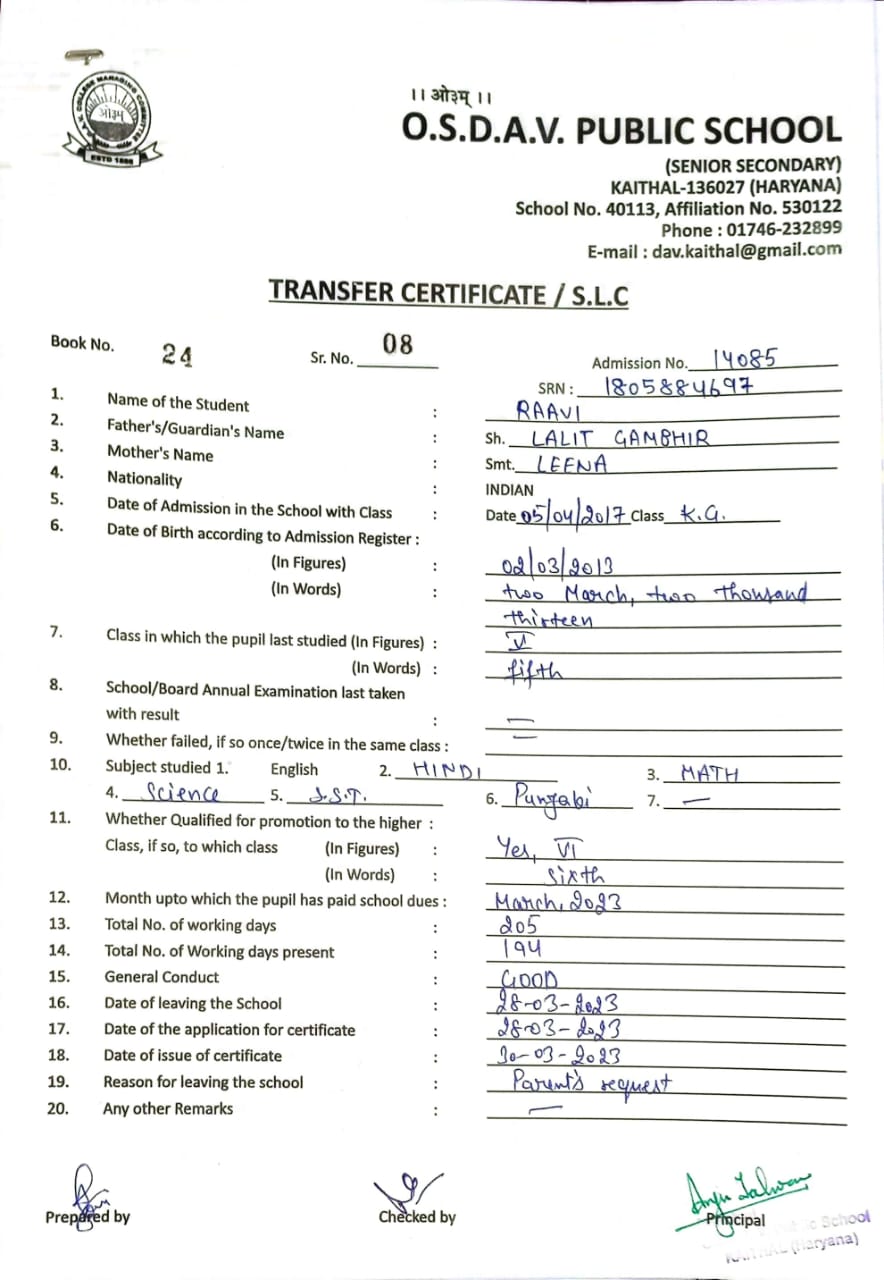 D.A.V. COLLEGE MANAGING COMMITTEE
ओ३म्
ESTD 1886
।। ओ३म् ।।
O.S.D.A.V. PUBLIC SCHOOL
(SENIOR SECONDARY)
KAITHAL-136027 (HARYANA)
School No. 40113, Affiliation No. 530122
Phone : 01746-232899
E-mail : dav.kaithal@gmail.com
TRANSFER CERTIFICATE / S.L.C
Book No. 24 Sr. No. 08 Admission No. 14085
SRN : 1805884697
1. Name of the Student : RAAVI
2. Father's/Guardian's Name : Sh. LALIT GAMBHIR
3. Mother's Name : Smt. LEENA
4. Nationality : INDIAN
5. Date of Admission in the School with Class : Date 05/04/2017 Class K.G.
6. Date of Birth according to Admission Register :
(In Figures) : 02/03/2013
(In Words) : two March, two thousand
thirteen
7. Class in which the pupil last studied (In Figures) : V
(In Words) : fifth
8. School/Board Annual Examination last taken
with result : —
9. Whether failed, if so once/twice in the same class : —
10. Subject studied 1. English 2. HINDI 3. MATH
4. Science 5. S.S.T. 6. Punjabi 7. —
11. Whether Qualified for promotion to the higher :
Class, if so, to which class (In Figures) : Yes, VI
(In Words) : Sixth
12. Month upto which the pupil has paid school dues : March, 2023
13. Total No. of working days : 205
14. Total No. of Working days present : 194
15. General Conduct : GOOD
16. Date of leaving the School : 28-03-2023
17. Date of the application for certificate : 28-03-2023
18. Date of issue of certificate : 30-03-2023
19. Reason for leaving the school : Parent's request
20. Any other Remarks : —
Prepared by Checked by Principal
Public School
KAITHAL (Haryana)